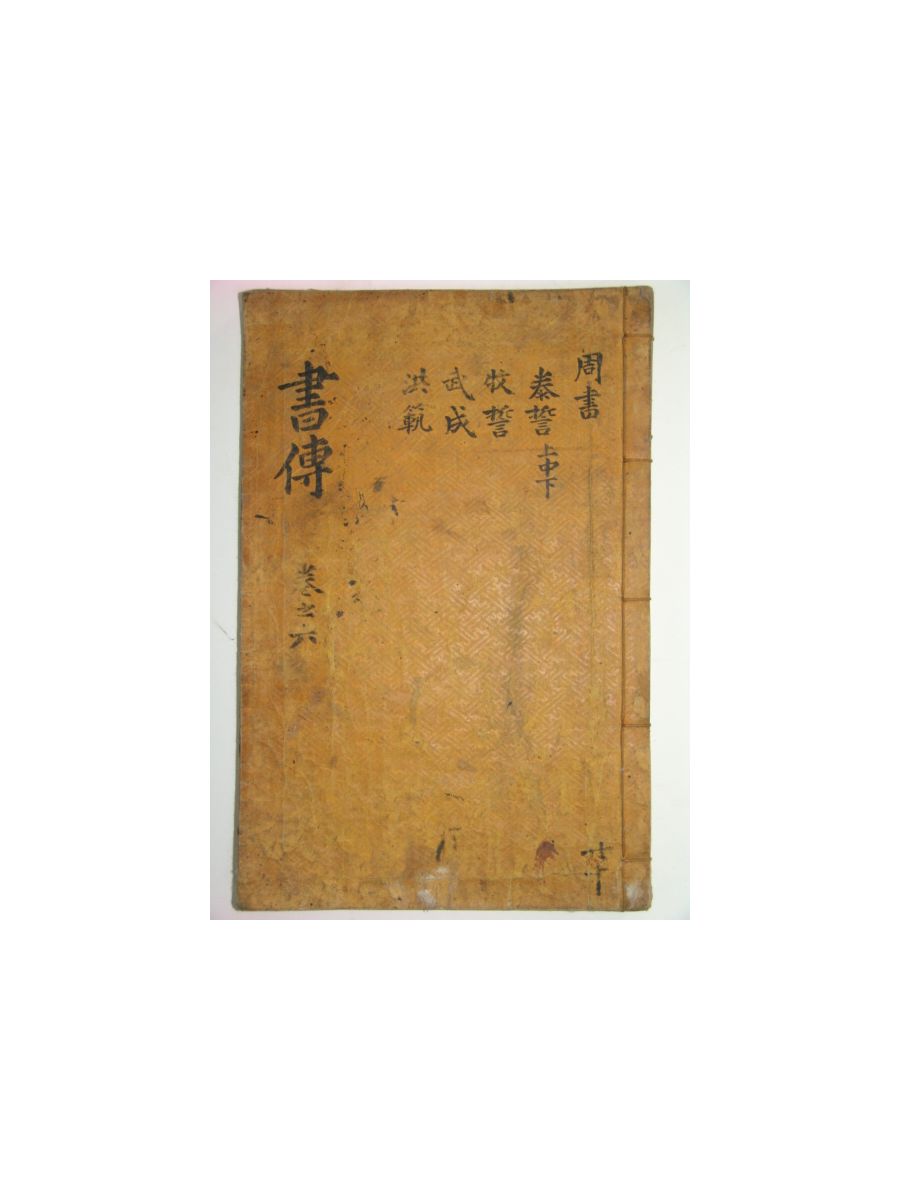 周書
泰誓上中下
牧誓
武成
洪範
書傳
卷之六
共十